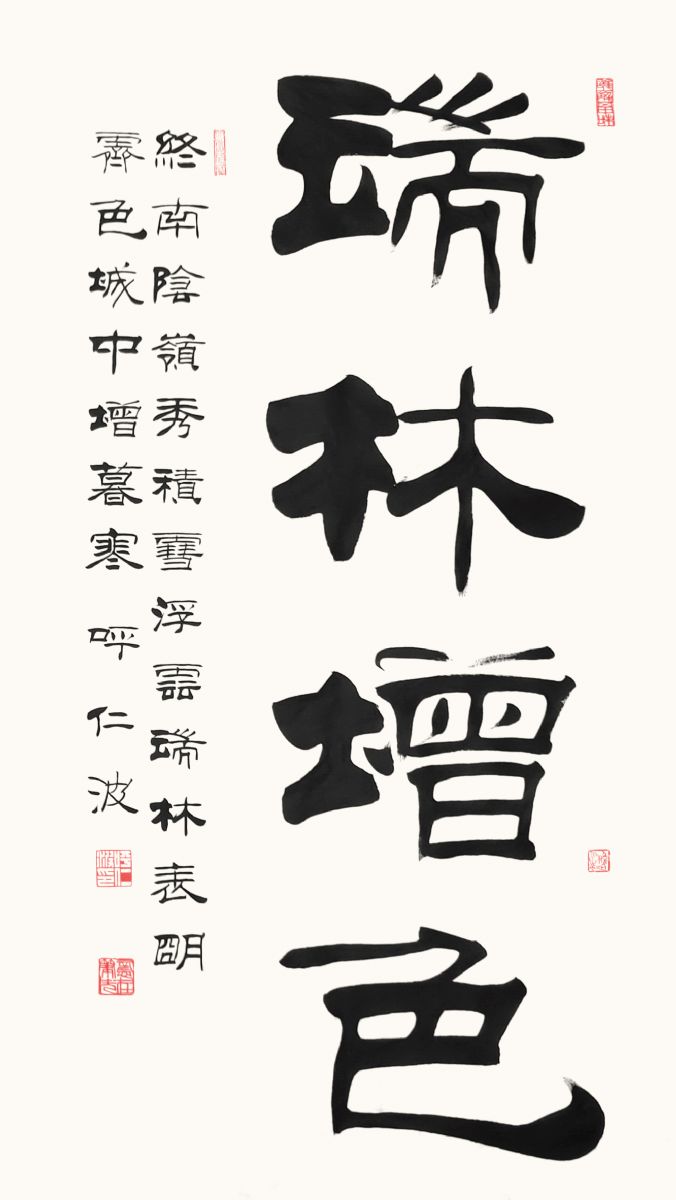 瑞林增色
終南陰嶺秀積雪浮雲瑞林表朙
霽色城中增暮寒 呼仁波